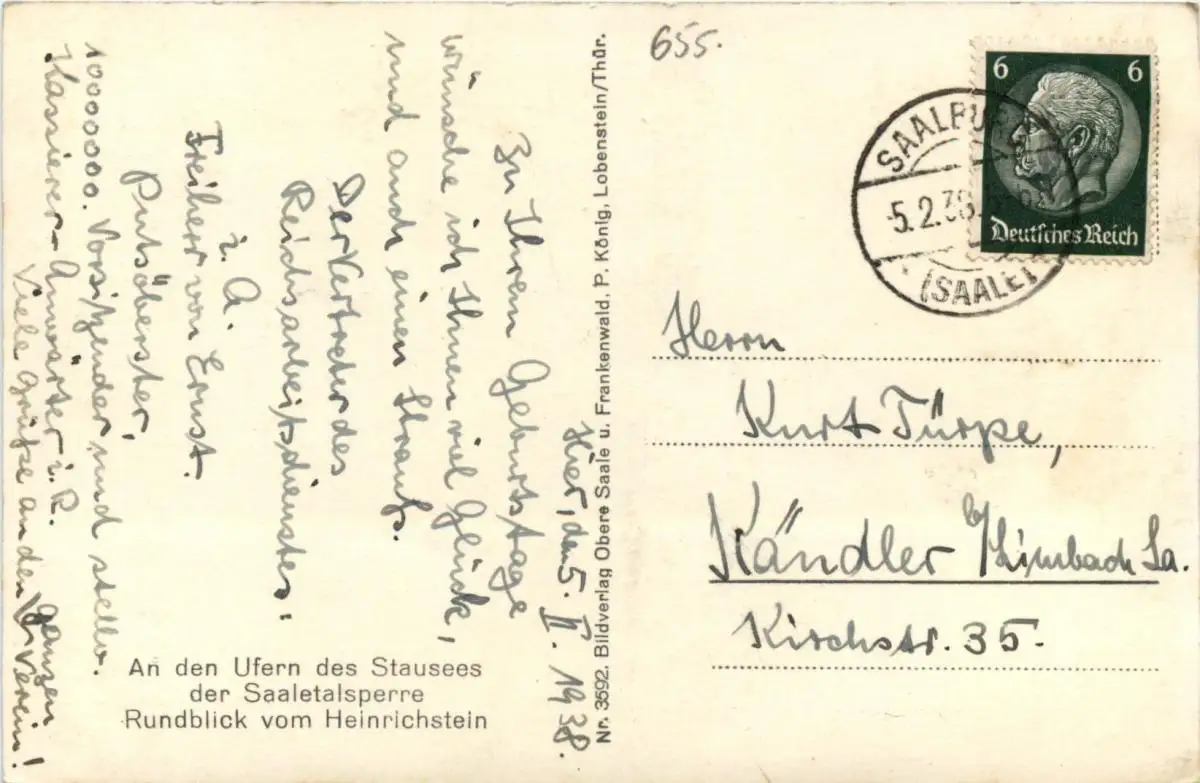 Hier, den 5. II. 1938.
Zu Ihrem Geburtstage
wünsche ich Ihnen viel Glück,
und auch einen Strauß.
Der Vertreter des
Reichsarbeitsdienstes.
i. A.
Freiherr von Ernst.
Putsöberster,
10000000. Vorsitzender und stellv.
Kassierer-Anwärter i. R.
Viele Grüße an den ganzen Verein!
An den Ufern des Stausees
der Saaletalsperre
Rundblick vom Heinrichstein
Nr. 3592. Bildverlag Obere Saale u. Frankenwald, P. König, Lobenstein/Thür.
655.
6 6
Deutsches Reich
SAALBURG
5.2.38
(SAALE)
Herrn
Kurt Türpe,
Kändler b/Limbach Sa.
Kirchstr. 35.